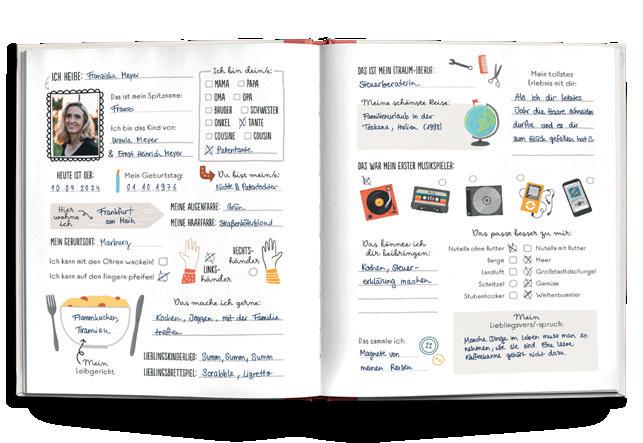 ICH HEIẞE: Franziska Meyer
Das ist mein Spitzname:
Franzi
Ich bin das Kind von:
Ursula Meyer
& Ernst Heinrich Meyer
Ich bin dein/e:
MAMA PAPA
OMA OPA
BRUDER SCHWESTER
ONKEL TANTE
COUSINE COUSIN
Patentante
HEUTE IST DER:
10.09.2024
Mein Geburtstag:
01.10.1976
Du bist mein/e:
Nichte & Patentochter
Hier wohne ich
Frankfurt
am Main
MEINE AUGENFARBE: Grün
MEINE HAARFARBE: Straßenköterblond
MEIN GEBURTSORT: Marburg
Ich kann mit den Ohren wackeln!
Ich kann auf den Fingern pfeifen!
LINKS-
händer
RECHTS-
händer
Flammkuchen,
Tiramisu
Mein
Leibgericht
Das mache ich gerne:
Kochen, Joggen, mit der Familie
treffen
LIEBLINGSKINDERLIED: Summ, Summ, Summ
LIEBLINGSBRETTSPIEL: Scrabble, Ligretto
DAS IST MEIN (TRAUM-)BERUF:
Steuerberaterin
Meine schönste Reise:
Familienurlaub in der
Toskana, Italien (1998)
Mein tollstes
Erlebnis mit dir:
Als ich dir letztes
Jahr die Haare schneiden
durfte und es dir
zum Glück gefallen hat
DAS WAR MEIN ERSTER MUSIKSPIELER:
Das könnte ich
dir beibringen:
Kochen, Steuer-
erklärung machen
Das passe besser zu mir:
Nutella ohne Butter Nutella mit Butter
Berge Meer
Landluft Großstadtdschungel
Schnitzel Gemüse
Stubenhocker Weltenbummler
Das sammle ich:
Magnete von
meinen Reisen
Mein
Lieblingsvers/-spruch:
Manche Dinge im Leben muss man so
nehmen, wie sie sind. Eine leere
Kaffeekanne gehört nicht dazu.